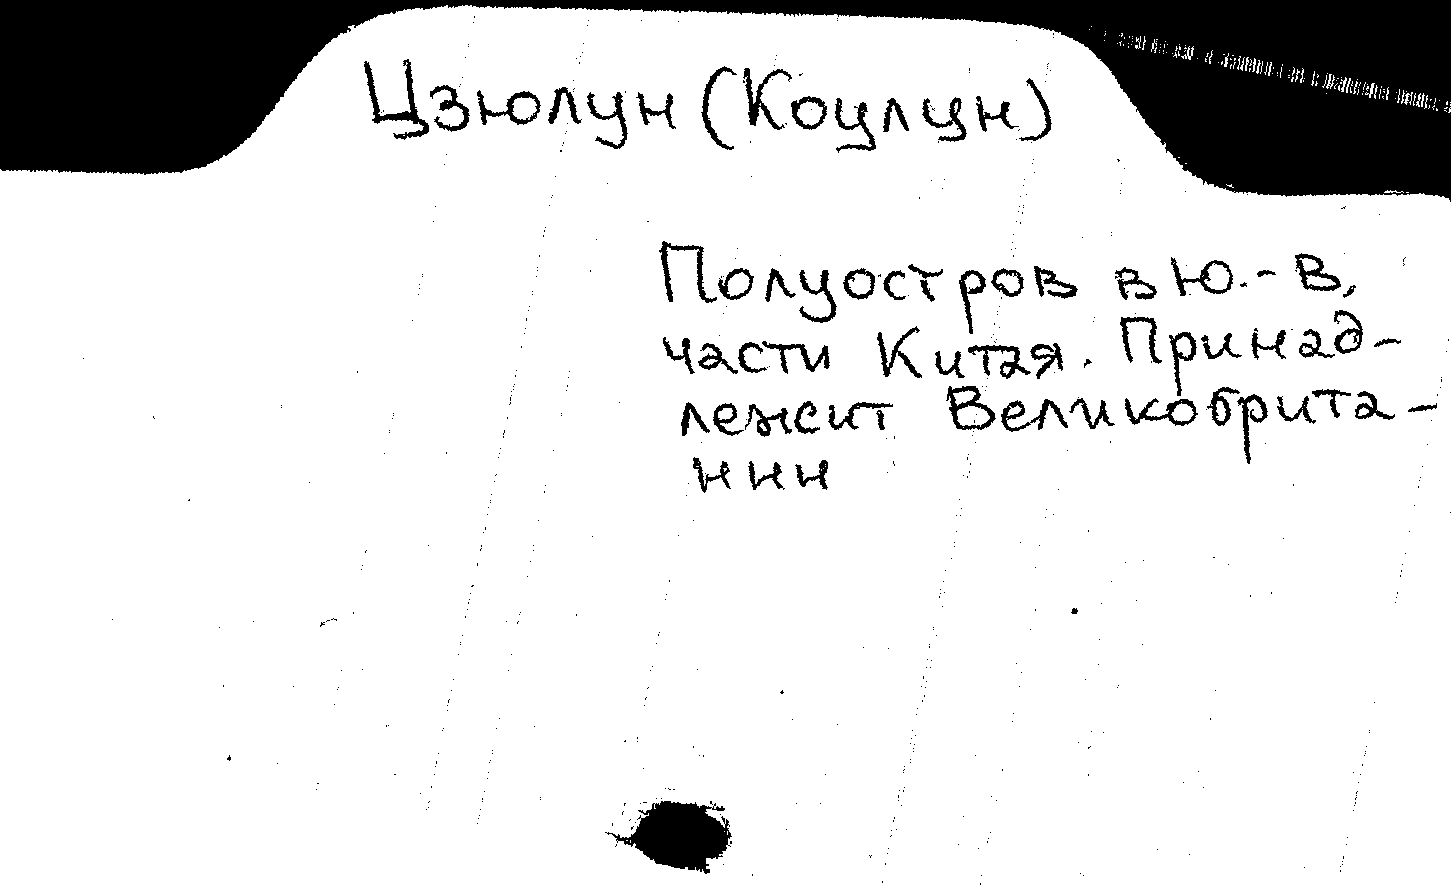 Цзюлун (Коулун)
Полуостров в Ю.-В.
части Китая. Принад-
лежит Великобрита-
нии